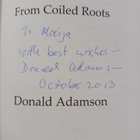 From Coiled Roots
To Maija
with best wishes —
Donald Adamson —
October 2013
Donald Adamson